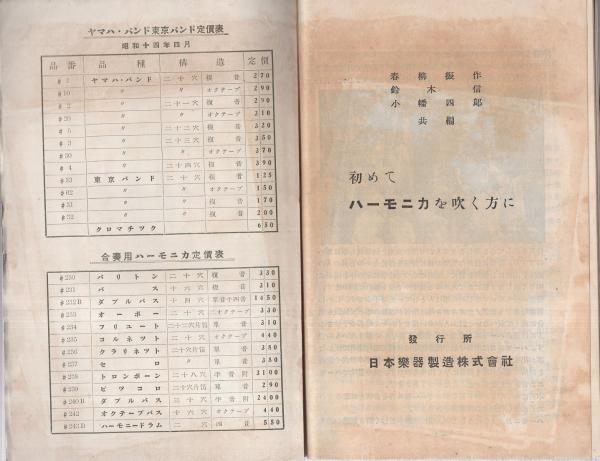 ヤマハ・バンド東京バンド定價表
昭和十四年四月
品番 品種 構造 定價
#1 ヤマハ・バンド 二十穴 複音 270
#10 〃 〃 オクターブ 290
#2 〃 二十一穴 複音 290
#20 〃 〃 オクターブ 310
〃 二十二穴 複音 320
#3 〃 二十三穴 複音 350
#30 〃 〃 オクターブ 370
#4 〃 二十四穴 複音 390
東京バンド 二十穴 複音 125
〃 〃 オクターブ 150
#31 〃 複音 170
#32 〃 複音 200
クロマチツク 650
合奏用ハーモニカ定價表
#230 バリトン 二十穴 複音 330
#231 バス 十六穴 複音 310
#232B ダブルバス 十四穴 1450
#233 オーボー 二十穴 オクターブ 330
#234 フリユート 二十二穴片笛 單音 310
#235 コルネツト 二十穴 オクターブ 440
#236 クラリネツト 二十六穴片笛 單音 380
#237 セロ 〃 單音 380
トロンボーン 二十八穴 半音附 3100
ピツコロ 二十六穴片笛 單音 290
#240B ダブルバス 三十穴 半音附 2400
#242 オクターブバス 十六穴 オクターブ 440
#243B ハーモニードラム 二穴 四音 550
春柳振作
鈴木信
小幡四郎
共編
初めて
ハーモニカを吹く方に
發行所
日本樂器製造株式會社